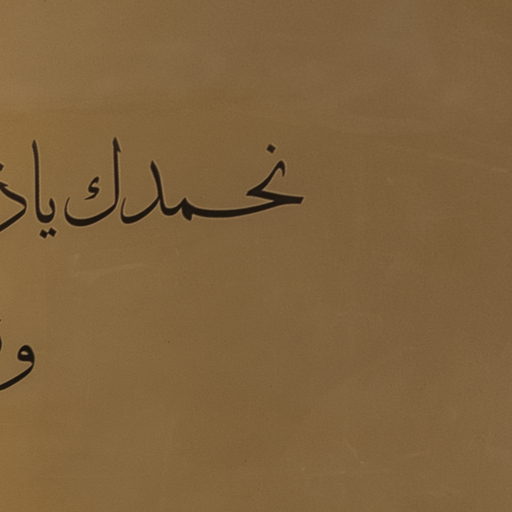 نحمدك يا